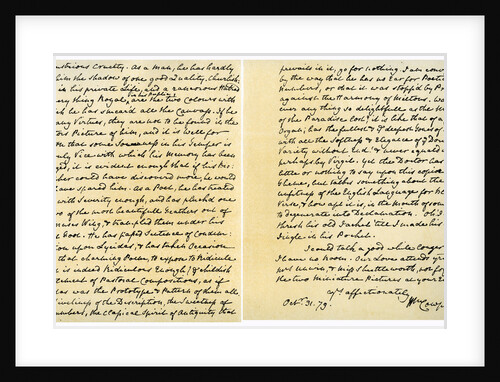 ustrious Cruelty. As a Man, he has hardly
him the shadow of one good Quality. Churlish-
in his private Life, and a rancorous Hatred
in his Public,
ery thing Royal, are the two Colours with
ch he has smear'd all the Canvas. If he
any Virtues, they are not to be found in the
ors Picture of him, and it is well for
on that some Sourness in his Temper is
nly Vice with which his Memory has been
ged, it is evident enough that if his Bio-
pher could have discover'd more, he would
have spared him. As a Poet, he has treated
with Severity enough, and has pluck'd one
wo of the most beautiful Feathers out of
Muses Wing, & trampled them under his
Foot. He has pass'd Sentence of Condem-
ion upon Lycidas, & has taken Occasion
that charming Poem, to expose to Ridicule
is indeed Ridiculous Enough) the childish
tlement of Pastoral Compositions, as if
das was the Prototype & Pattern of them all.
liveliness of the Description, the Sweetness of
umbers, the Classical Spirit of Antiquity that
prevails in it, go for nothing. I am conv
by the way that he has no Ear for Poetic
Numbers, or that it was stopp'd by P
against the Harmony of Milton's. Wa
ever any thing so delightfull as the Mu
of the Paradise Lost? it is like that of a
Organ; has the fullest & the deepest Tones of
with all the Softness & Elegance of the D
Variety without End! & never equal'd
perhaps by Virgil. Yet the Doctor has
little or nothing to say upon this copious
Theme, but talks something about the
unfitness of the English Language for
Verse, & how apt it is, in the Mouth of some
to degenerate into Declamation. Oh! I
thresh his old Jacket 'till I made his
Jingle in his Pocket.
I could talk a good while longer
I have no Room. Our Love attends y
Miss Shuttleworth, not for
the two Miniature Pictures at your E
Yrs affectionately
Wm Cowp
Octr. 31. 79.